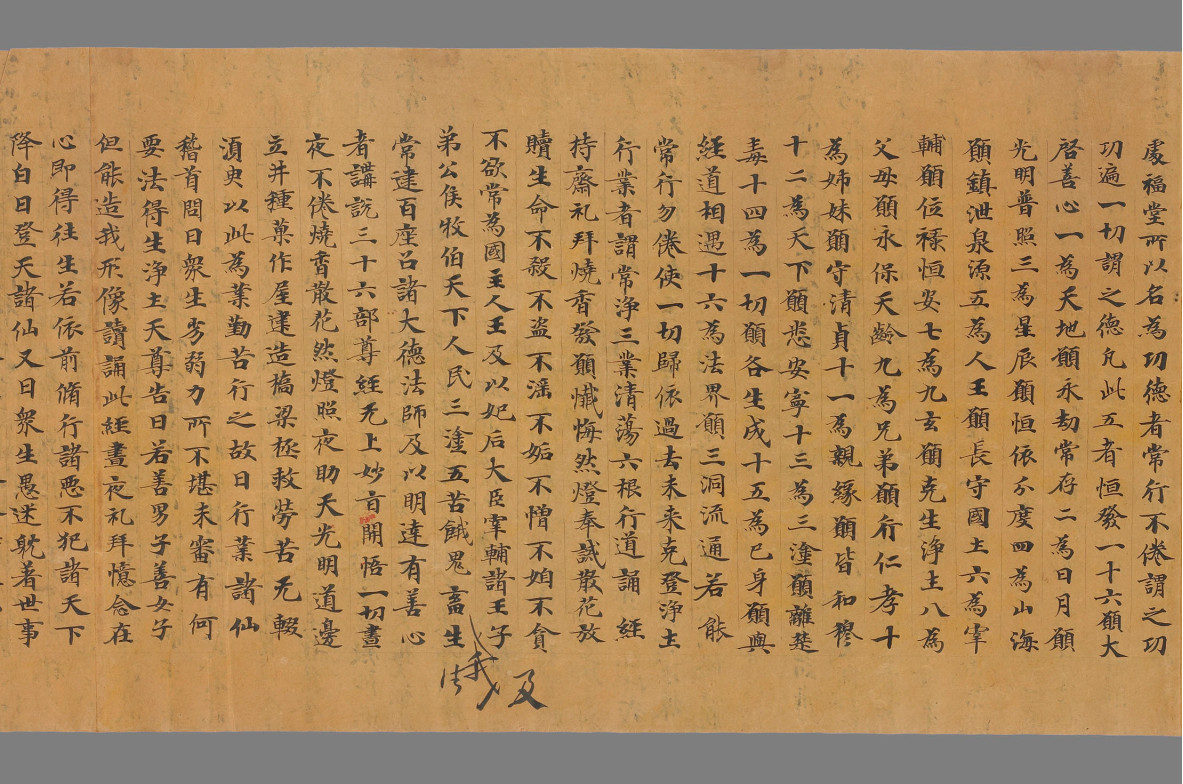 處福堂所以名為功德者常行不倦謂之功
功遍一切謂之德凡此五者恒發一十六願大
啓善心一為天地願永劫常存二為日月願
光明普照三為星辰願恒依分度四為山海
願鎮泄泉源五為人王願長守國土六為宰
輔願位祿恒安七為九玄願克生淨土八為
父母願永保天齡九為兄弟願行仁孝十
為姉妹願守清貞十一為親緣願皆和穆
十二為天下願悉安寧十三為三塗願離楚
毒十四為一切願各生成十五為己身願與
經道相遇十六為法界願三洞流通若能
常行勿倦使一切歸依過去未来克登淨土
行業者謂常淨三業清蕩六根行道誦經
持齋礼拜燒香發願懴悔然燈奉誡散花放
贖生命不殺不盜不滛不妬不憎不妲不貪
不欲常為國主人王及以妃后大臣宰輔諸王子
弟公侯牧伯天下人民三塗五苦餓鬼畜生
常建百座呂諸大德法師及以明達有善心
者講説三十六部尊經无上妙㫖開悟一切晝
夜不倦燒香散花然燈照夜助天光明道邊
立井種菓作屋建造橋梁拯救勞苦无輟
湏臾以此為業勤苦行之故曰行業諸仙
稽首問曰衆生劣弱力所不堪未審有何
要法得生淨土天尊告曰若善男子善女子
但能造我形像讀誦此經晝夜礼拜憶念在
心即得往生若依前脩行諸惡不犯諸天下
降白日登天諸仙又曰衆生愚迷躭著世事
及